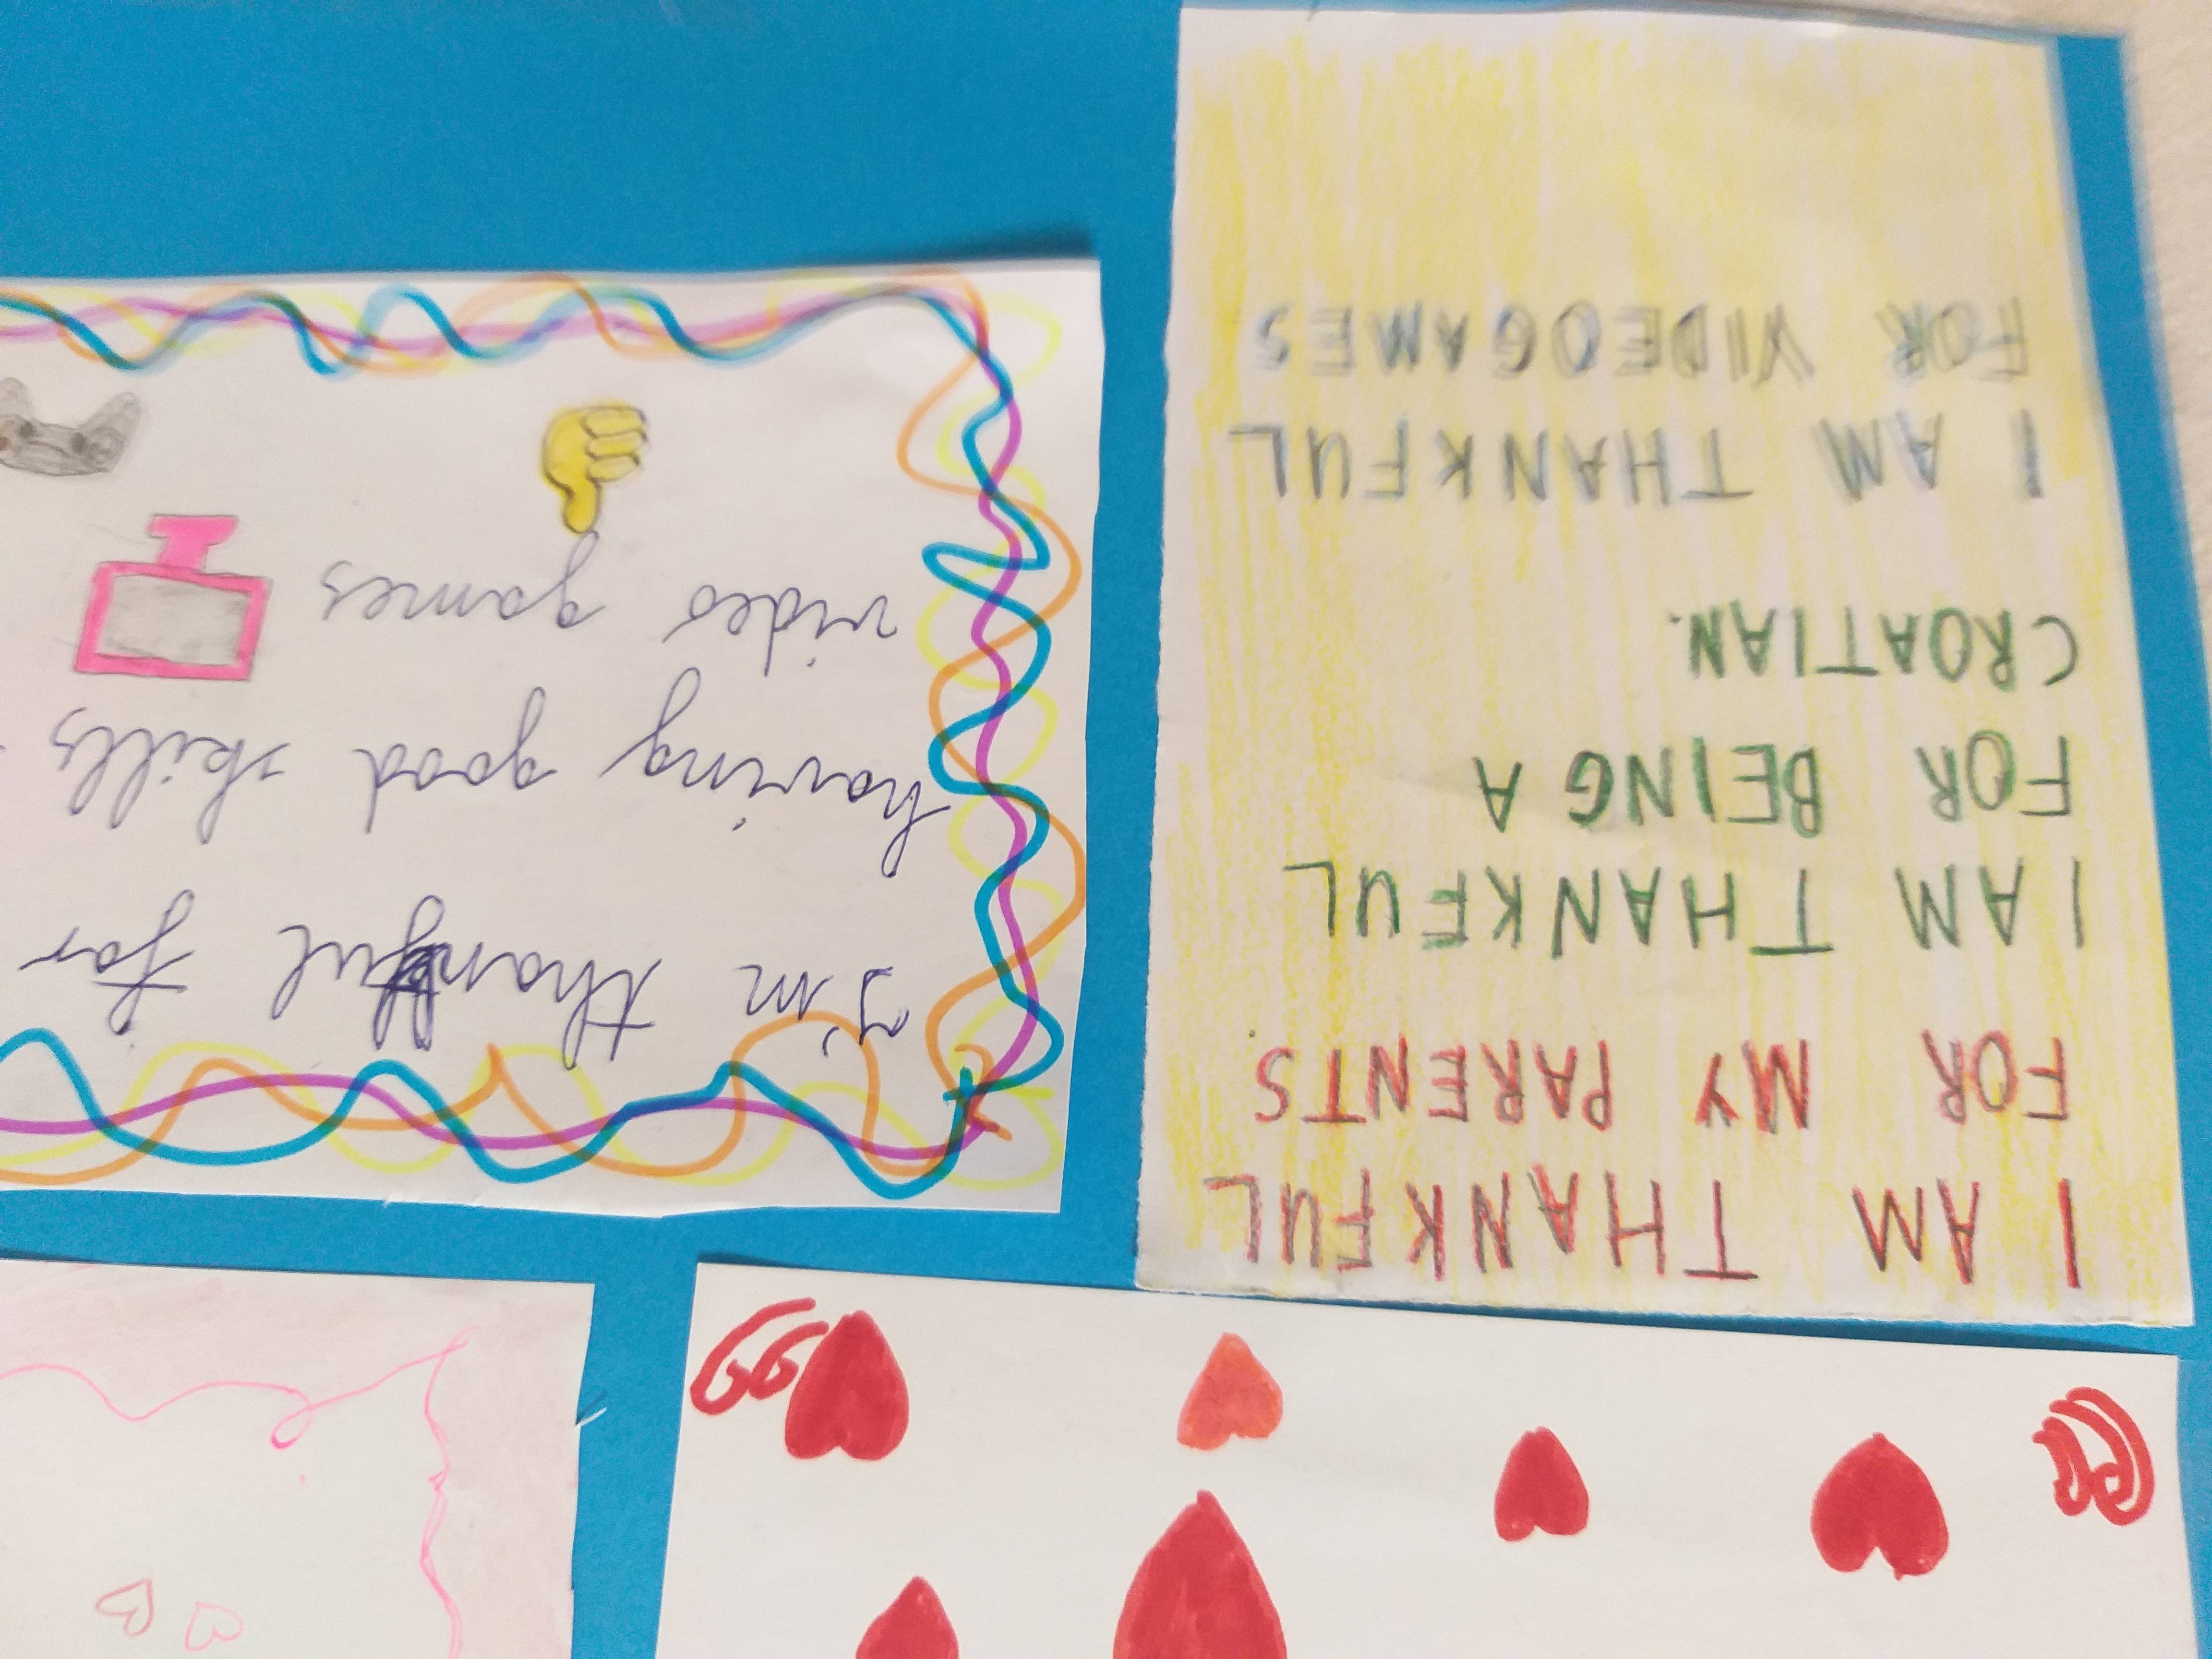 I AM THANKFUL
FOR MY PARENTS
I AM THANKFUL
FOR BEING A
CROATIAN.
I AM THANKFUL
FOR VIDEOGAMES
I'm thankful for
having good skills
video games